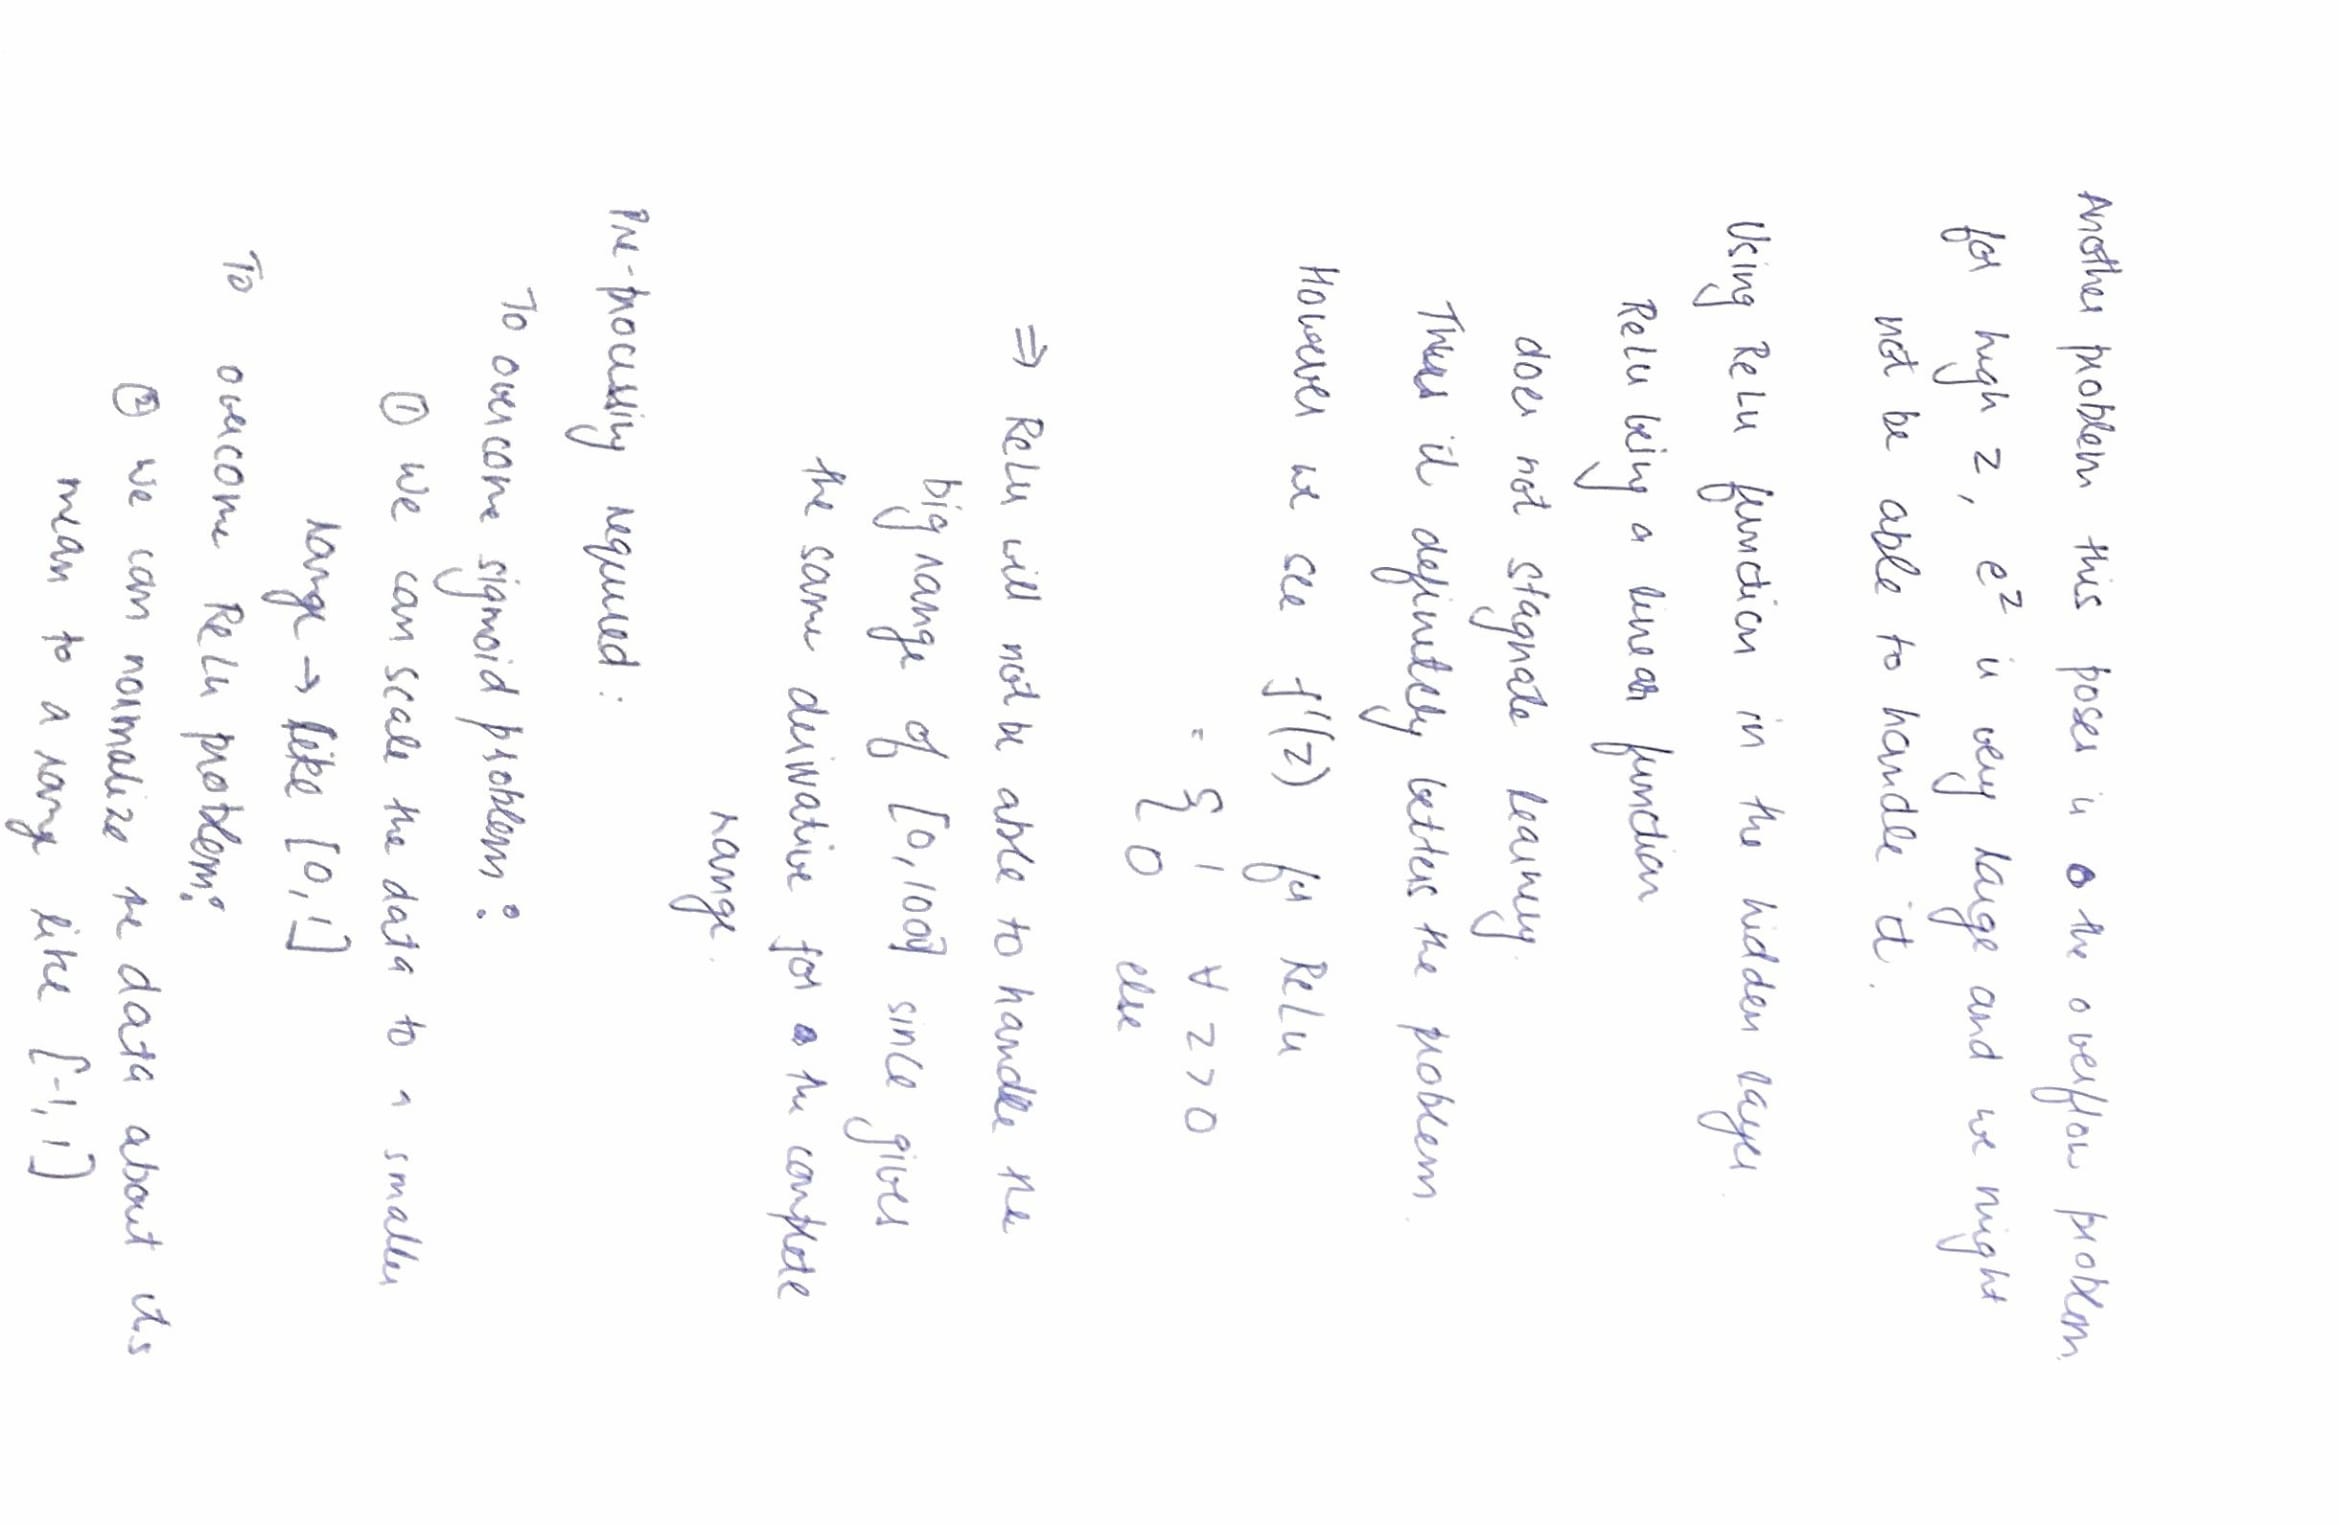 Another problem this poses is the overflow problem.
for high z, e^z is very large and we might
not be able to handle it.
Using ReLu function in the hidden layer
ReLu being a linear function
does not stagnate learning.
Thus it definitely betters the problem.
However we see f'(z) for ReLu
= { 1 ∀ z > 0
0 else
⇒ ReLu will not be able to handle the
big range of [0, 100] since gives
the same derivative for the complete
range.
Pre-processing required :
To overcome sigmoid problem :
① We can scale the data to a smaller
range → like [0, 1]
To overcome ReLu problem:
② we can normalize the data about its
mean to a range like [-1, 1]